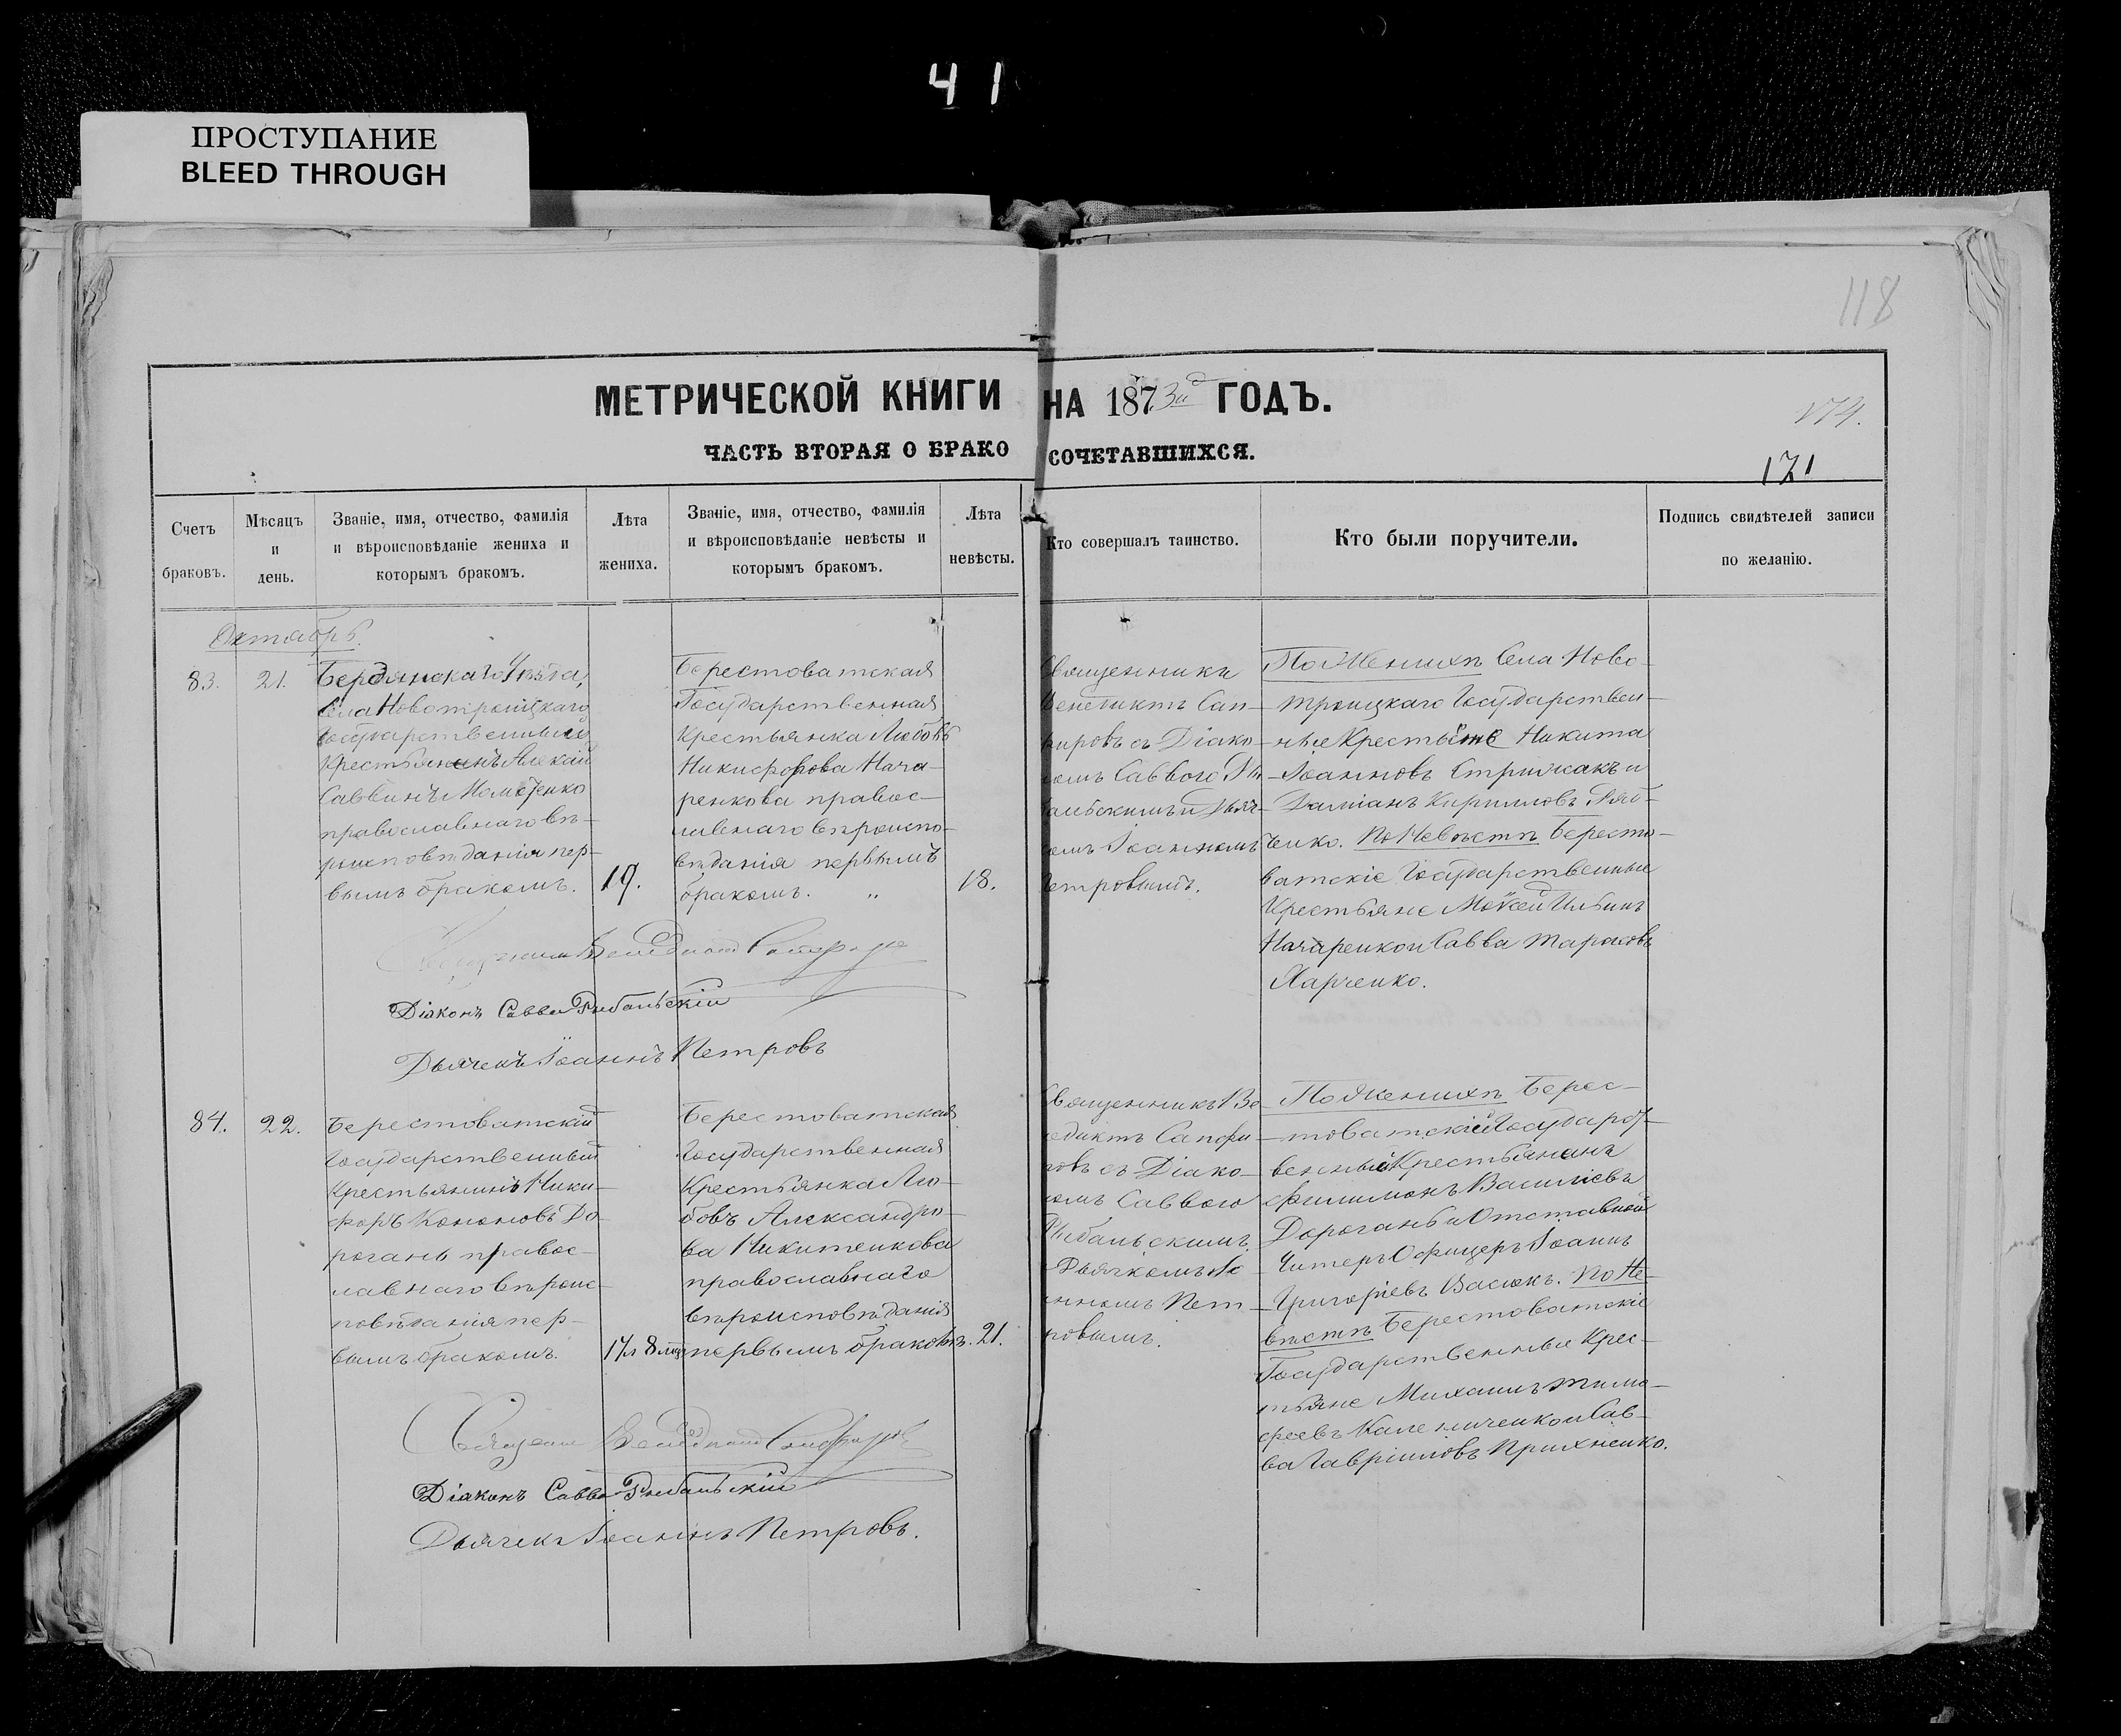 41
ПРОСТУПАНИЕ
BLEED THROUGH
118
МЕТРИЧЕСКОЙ КНИГИ НА 1873й ГОДЪ.
174.
ЧАСТЬ ВТОРАЯ О БРАКО СОЧЕТАВШИХСЯ.
171
Счетъ
браковъ.
Мѣсяцъ
и
день.
Званіе, имя, отчество, фамилія
и вѣроисповѣданіе жениха и
которымъ бракомъ.
Лѣта
жениха.
Званіе, имя, отчество, фамилія
и вѣроисповѣданіе невѣсты и
которымъ бракомъ.
Лѣта
невѣсты.
Кто совершалъ таинство.
Кто были поручители.
Подпись свидѣтелей записи
по желанію.
Октябрь.
83.
21.
Бердянскаго Уѣзда,
Села Новотроицкаго
Государственный
Крестьянинъ Алексій
Саввинъ
православнаго вѣ-
роисповѣданія пер-
вымъ бракомъ.
19.
Берестоватская
Государственная
Крестьянка Любовь
Никифорова Нача-
ренкова правос-
лавнаго вѣроиспо-
вѣданія первымъ
бракомъ. „
18.
Священникъ
Венедиктъ Сап-
фировъ съ Діако-
номъ Саввою Ры-
бальскимъ и Дьяч-
комъ Іоанномъ
Петровымъ.
По Женихѣ Села Ново-
троицкаго Государствен-
ные Крестьяне Никита
Іоанновъ Стрижакъ и
Даміанъ Кирилловъ Ряб-
ченко. По Невѣстѣ Бересто-
ватскіе Государственные
Крестьяне Мокей Ильинъ
Начаренко и Савва Тарасовъ
Харченко.
Священникъ Венедиктъ Сапфировъ
Діаконъ Савва Рыбальскій
Дьячекъ Іоаннъ Петровъ
84.
22.
Берестоватскій
Государственный
Крестьянинъ Ники-
форъ Кононовъ До-
рогань правос-
лавнаго вѣроис-
повѣданія пер-
вымъ бракомъ.
17 л 8 мѣц
Берестоватская
Государственная
Крестьянка Лю-
бовь Александро-
ва Никитенкова
православнаго
вѣроисповѣданія
первымъ бракомъ.
21.
Священникъ Ве-
недиктъ Сапфи-
ровъ съ Діако-
номъ Саввою
Рыбальскимъ
Дьячкомъ Іо-
анномъ Пет-
ровымъ.
По Женихѣ Берес-
товатскій Государст-
венный Крестьянинъ
Филимонъ Василіевъ
Дорогань и Отставной
Унтеръ Офицеръ Іоаннъ
Григоріевъ Васюкъ. По Не-
вѣстѣ Берестоватскіе
Государственные Крес-
тьяне Михаилъ Тимо-
феевъ Калениченко и Сав-
ва Гавріиловъ Прихненко.
Священникъ Венедиктъ Сапфировъ
Діаконъ Савва Рыбальскій
Дьячекъ Іоаннъ Петровъ.